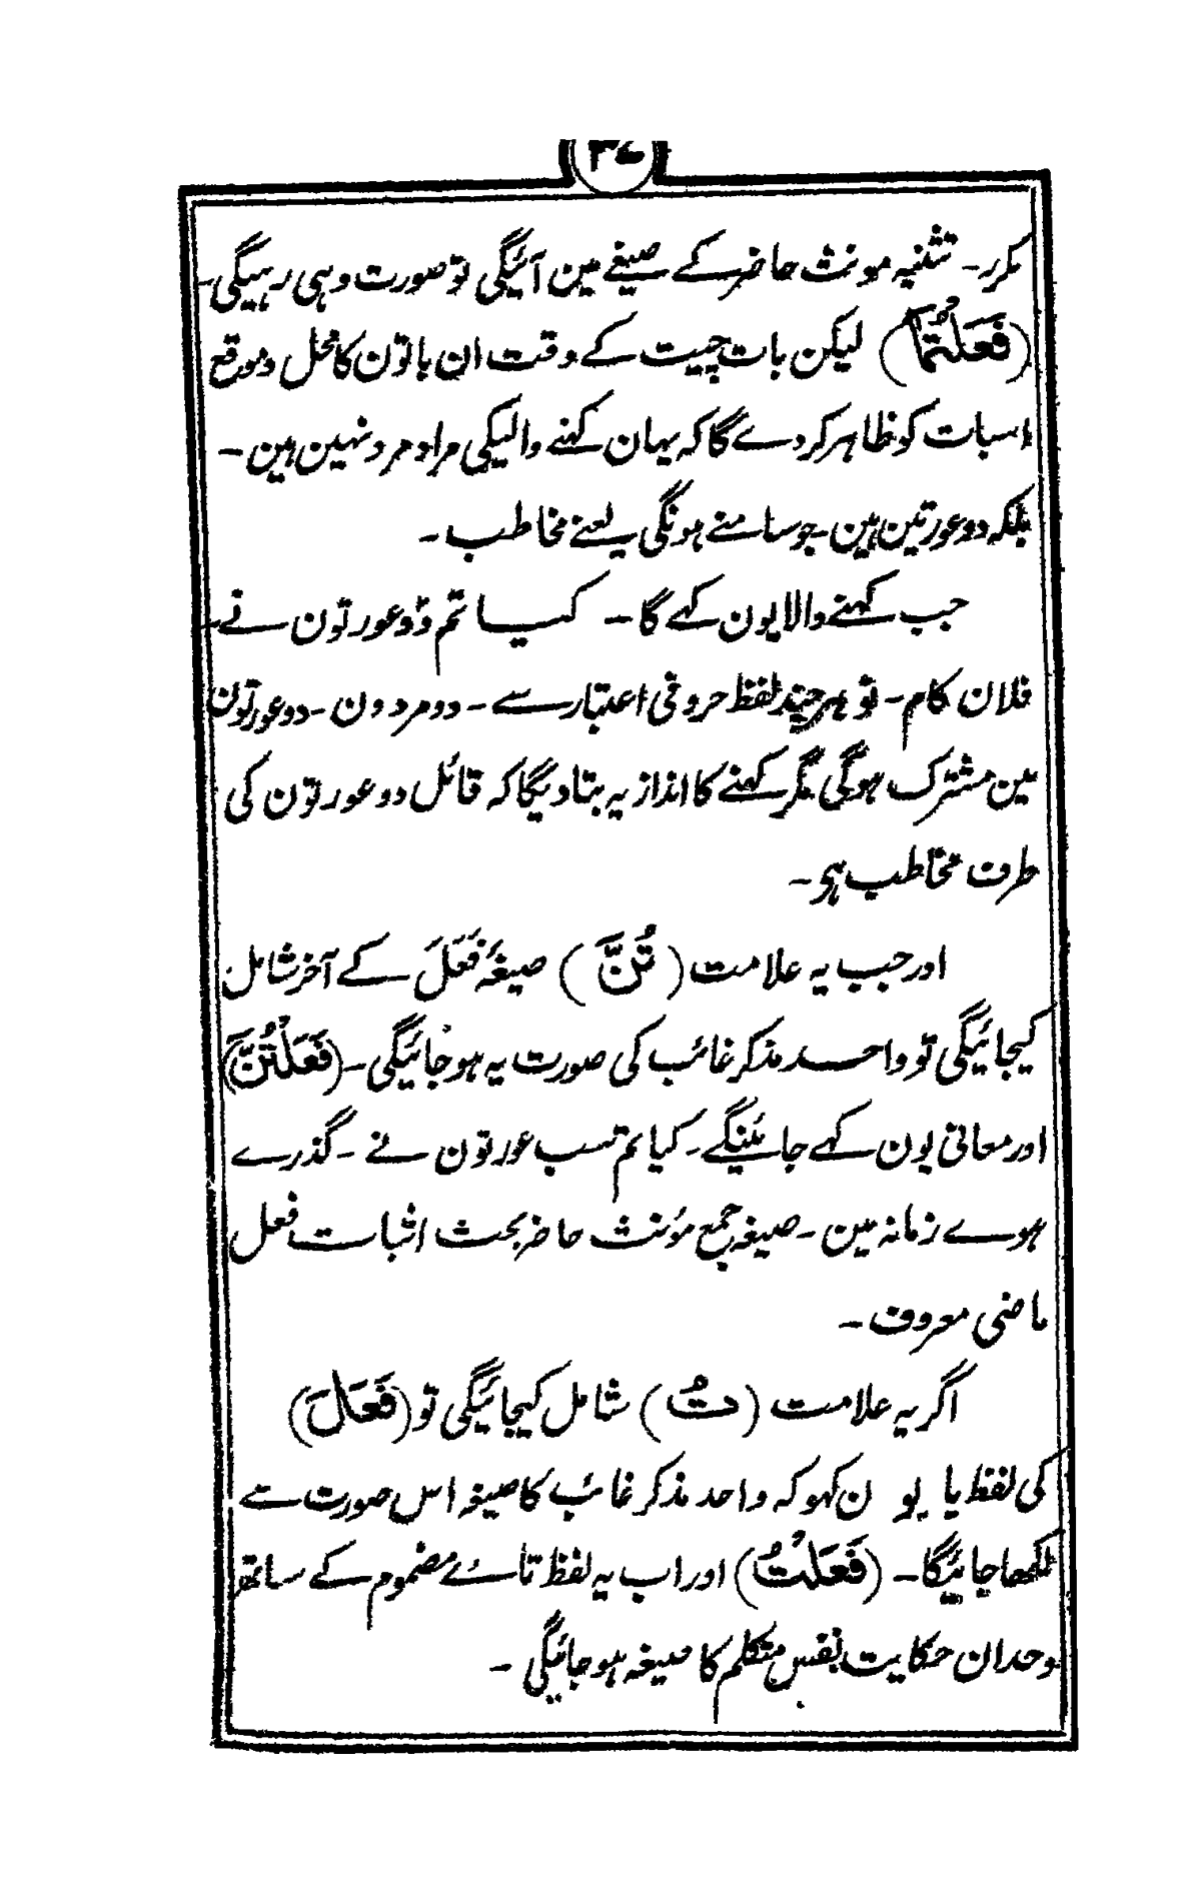 ۳۷
مکرر۔ تثنیہ مونث حاضر کے صیغے مین آئیگی تو صورت وہی رہیگی۔
(فَعَلْتُمَا) لیکن بات چیت کے وقت ان باتون کا محل وموقع
اسبات کو ظاہر کردے گا کہ یہان کہنے والیکی مراد مرد نہین ہین۔
بلکہ دو عورتین ہین۔ جو سامنے ہونگی یعنے مخاطب۔
جب کہنے والا یون کہے گا۔ کیا تم دُو عورتون نے۔
فلان کام۔ تو ہرچند لفظ حروفی اعتبار سے۔ دو مردون۔ دو عورتون
مین مشترک ہوگی مگر کہنے کا انداز یہ بتا دیگا کہ قائل دو عورتون کی
طرف مخاطب ہی۔
اور جب یہ علامت (تُنَّ) صیغۂ فَعَلَ کے آخر شامل
کیجائیگی تو واحد مذکر غائب کی صورت یہ ہوجائیگی۔ (فَعَلْتُنَّ)
اور معانی یون کہے جائینگے۔ کیا تم سب عورتون نے۔ گذرے
ہوے زمانہ مین۔ صیغہ جمع مؤنث حاضر بحث اثبات فعل
ماضی معروف۔
اگر یہ علامت (تُ) شامل کیجائیگی تو (فَعَلَ)
کی لفظ یا یو ن کہو کہ واحد مذکر غائب کا صیغہ اس صورت سے
لکھا جائیگا۔ (فَعَلْتُ) اور اب یہ لفظ تائے مضموم کے ساتھ
وحدان حکایت نفس متکلم کا صیغہ ہوجائیگی۔